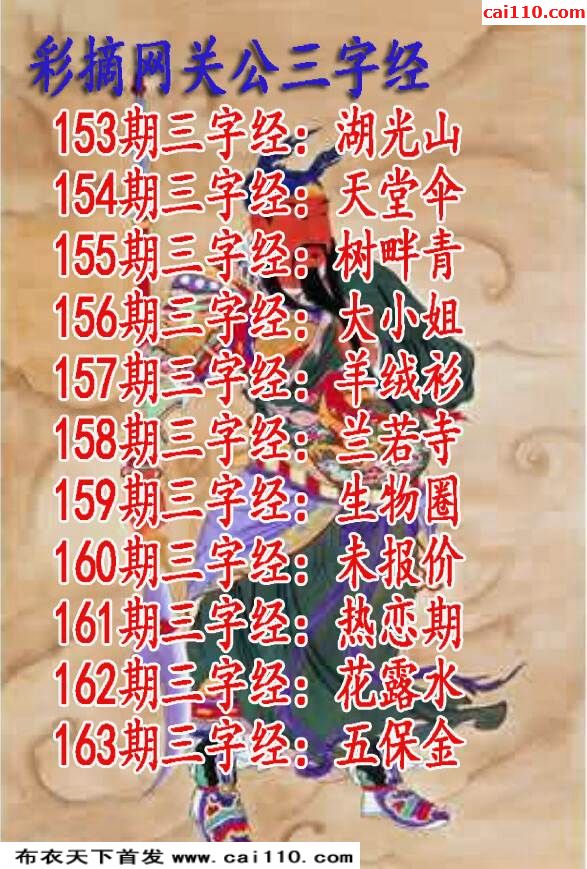 cai110.com
彩摘网关公三字经
153期三字经：湖光山
154期三字经：天堂伞
155期三字经：树畔青
156期三字经：大小姐
157期三字经：羊绒衫
158期三字经：兰若寺
159期三字经：生物圈
160期三字经：未报价
161期三字经：热恋期
162期三字经：花露水
163期三字经：五保金
布衣天下首发 www.cai110.com